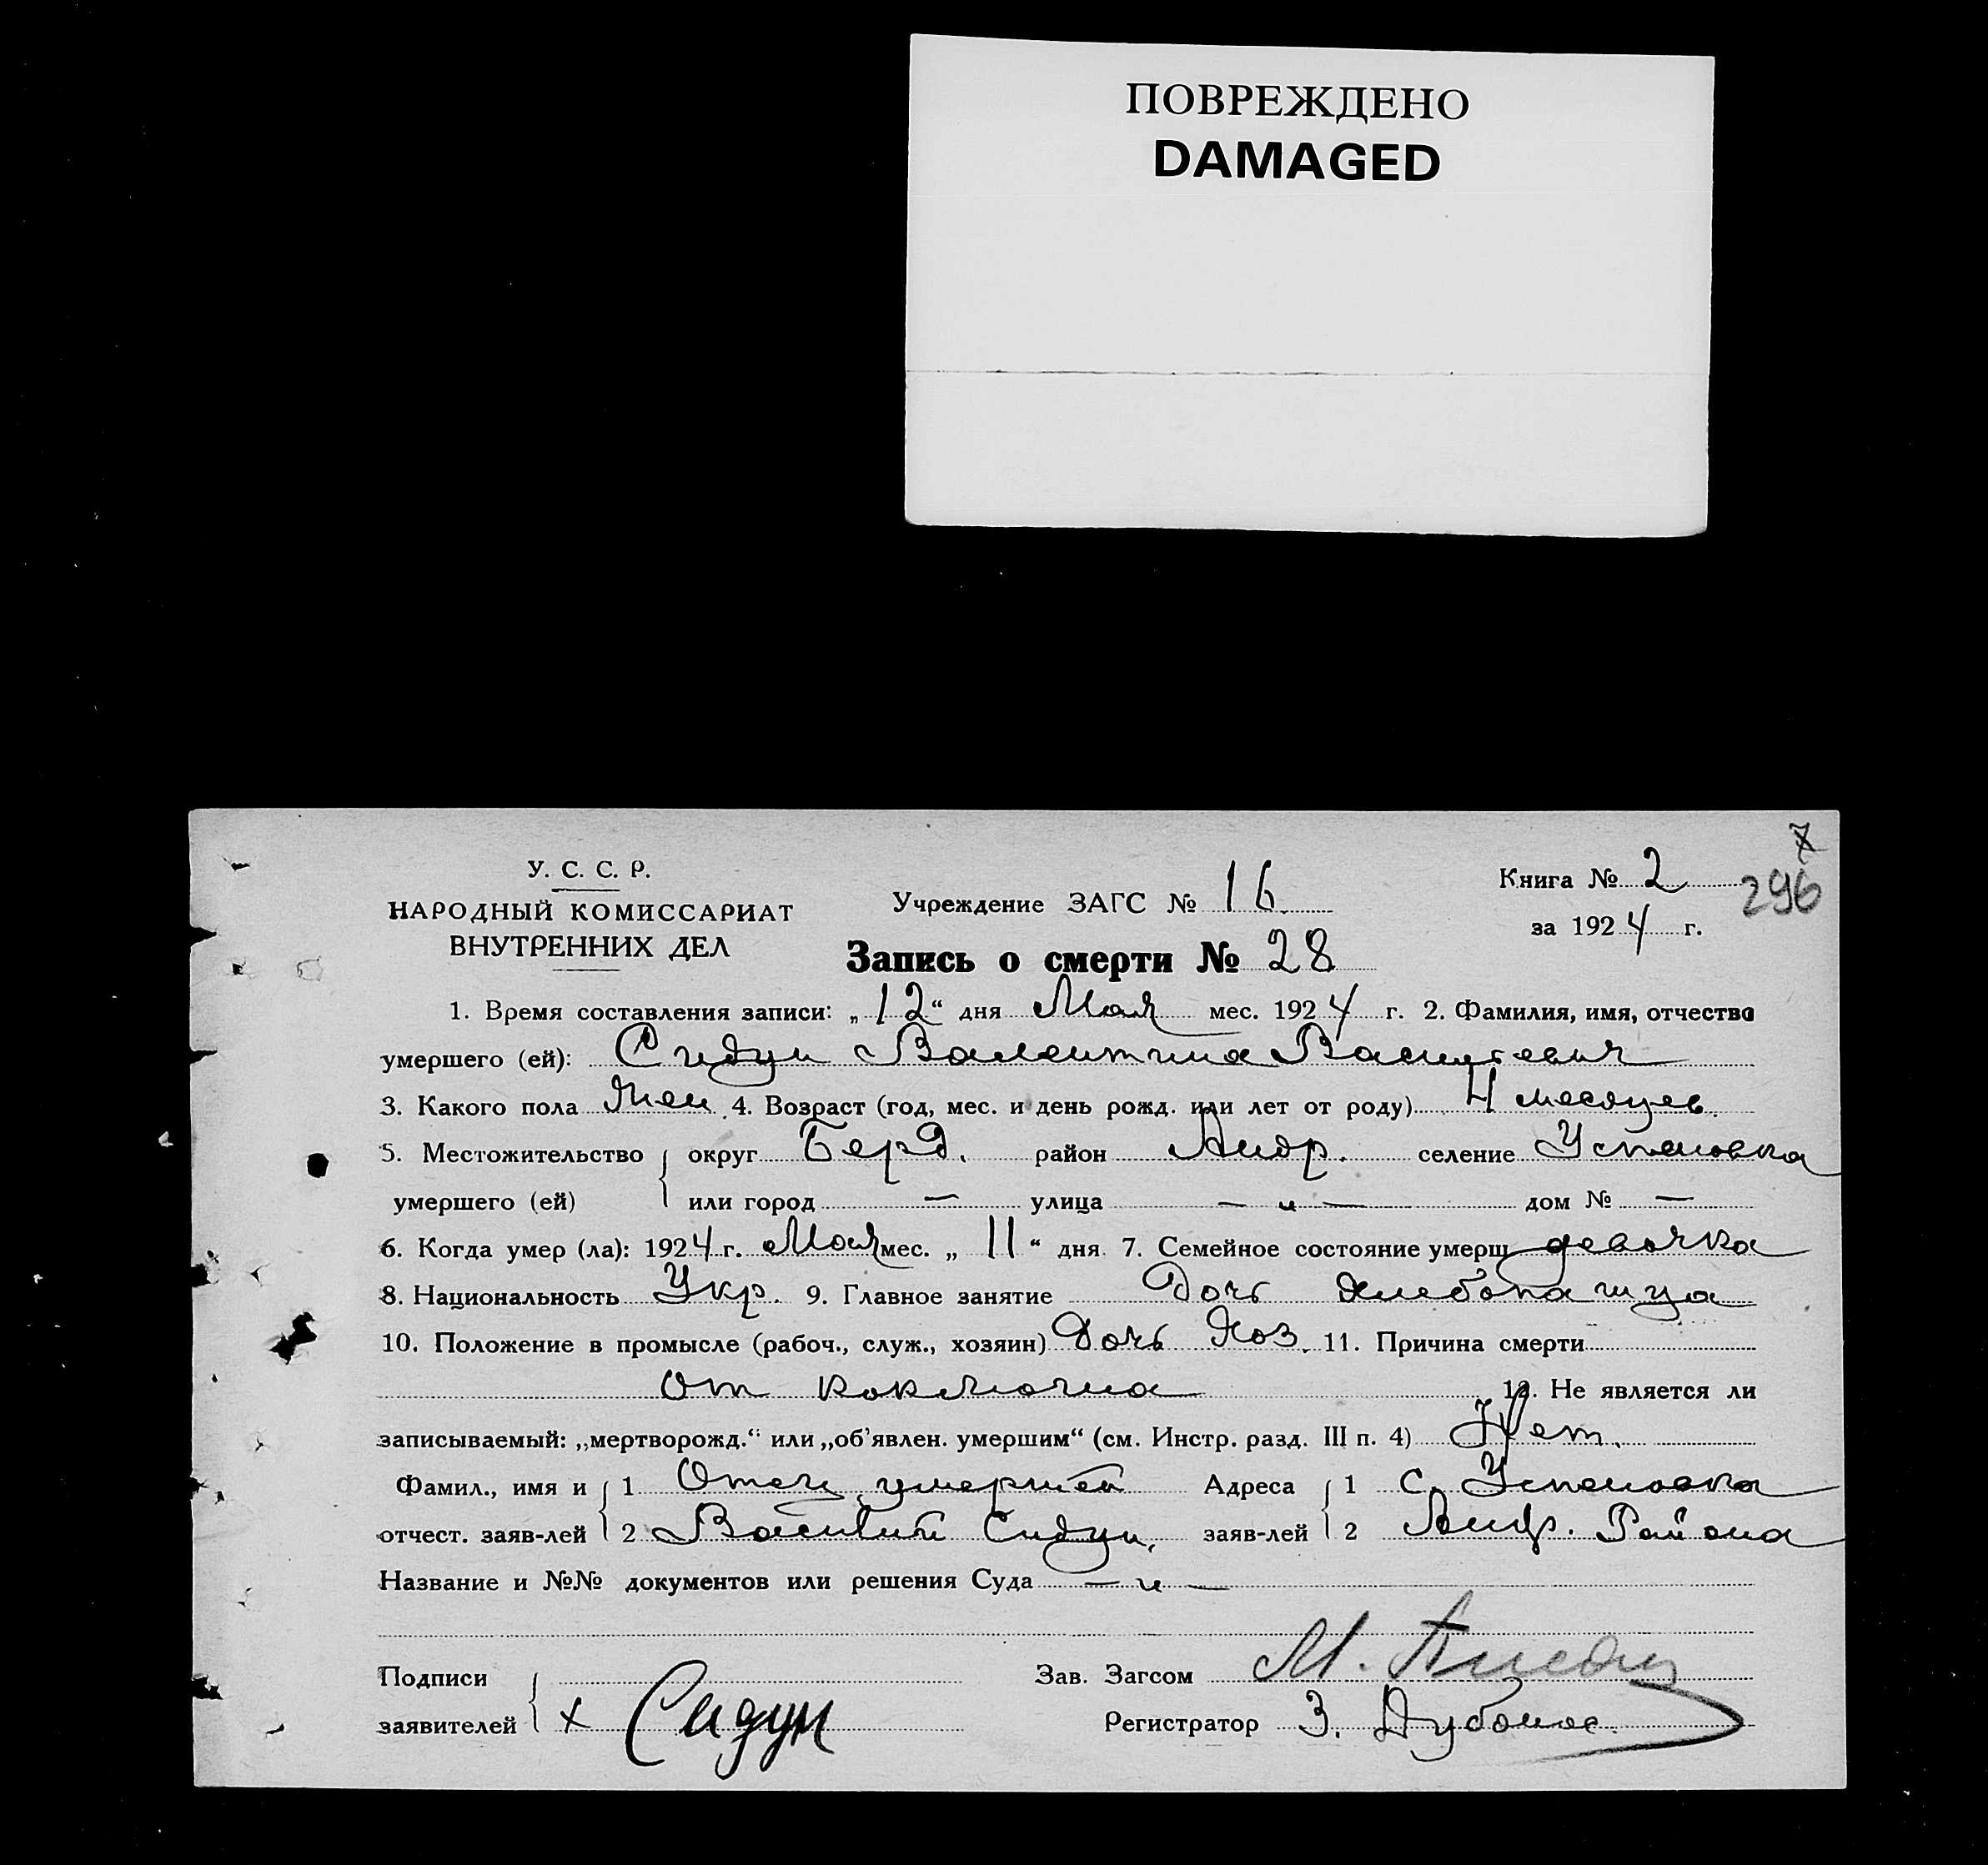 ПОВРЕЖДЕНО
DAMAGED
7
296
У. С. С. Р.
НАРОДНЫЙ КОМИССАРИАТ
ВНУТРЕННИХ ДЕЛ
Учреждение ЗАГС № 16
Книга № 2
за 1924 г.
Запись о смерти № 28
1. Время составления записи: „12“ дня Мая мес. 1924 г. 2. Фамилия, имя, отчество
умершего (ей): Сидун Валентина Васильевич
3. Какого пола Жен 4. Возраст (год, мес. и день рожд. или лет от роду) 4 месяцев.
5. Местожительство округ Берд. район Андр. селение Успеновка
умершего (ей) или город — улица — „ — дом № —
6. Когда умер (ла): 1924 г. Мая мес. „11“ дня 7. Семейное состояние умерш девочка
8. Национальность Укр. 9. Главное занятие Дочь хлебопашца
10. Положение в промысле (рабоч., служ., хозяин) Дочь Хоз. 11. Причина смерти
От коклюшна 12. Не является ли
записываемый: „мертворожд.“ или „об'явлен. умершим“ (см. Инстр. разд. III п. 4) Нет.
Фамил., имя и 1 Отец умершей Адреса 1 С. Успеновка
отчест. заяв-лей 2 Василий Сидун. заяв-лей 2 Андр. Района
Название и №№ документов или решения Суда — „ —
Подписи Зав. Загсом М.
заявителей х Сидун Регистратор З. Дубонос.